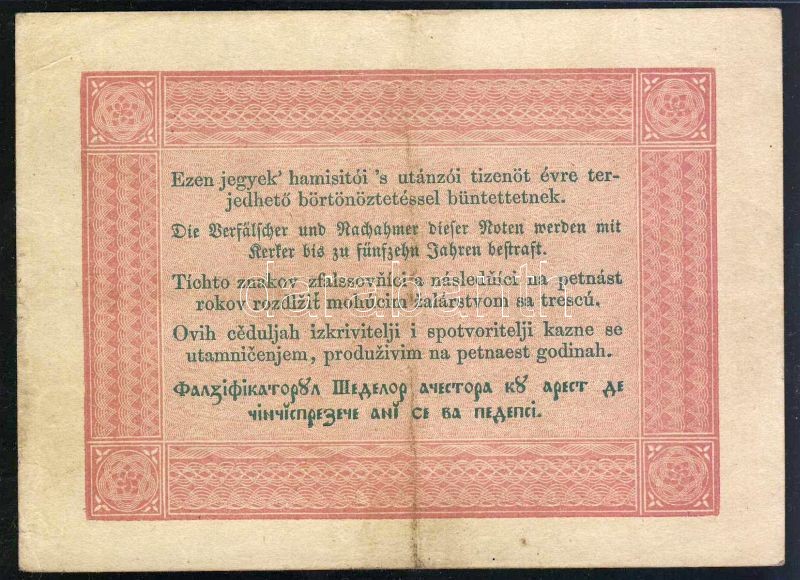 Ezen jegyek' hamisitói 's utánzói tizenöt évre ter-
jedhető börtönöztetéssel büntettetnek.
Die Verfälscher und Nachahmer dieser Noten werden mit
Kerker bis zu fünfzehn Jahren bestraft.
Tíchto znakov zfalssovňíci a následňíci na petnást
rokov rozdlžiť mohúcim žalárstvom sa trescú.
Ovih cěduljah izkrivitelji i spotvoritelji kazne se
utamničenjem, produživim na petnaest godinah.
Фалзіфікаторꙋл Шеделор ачестора кꙋ арест де
чінчіспрезече ані се ва педепсі.
darabanth